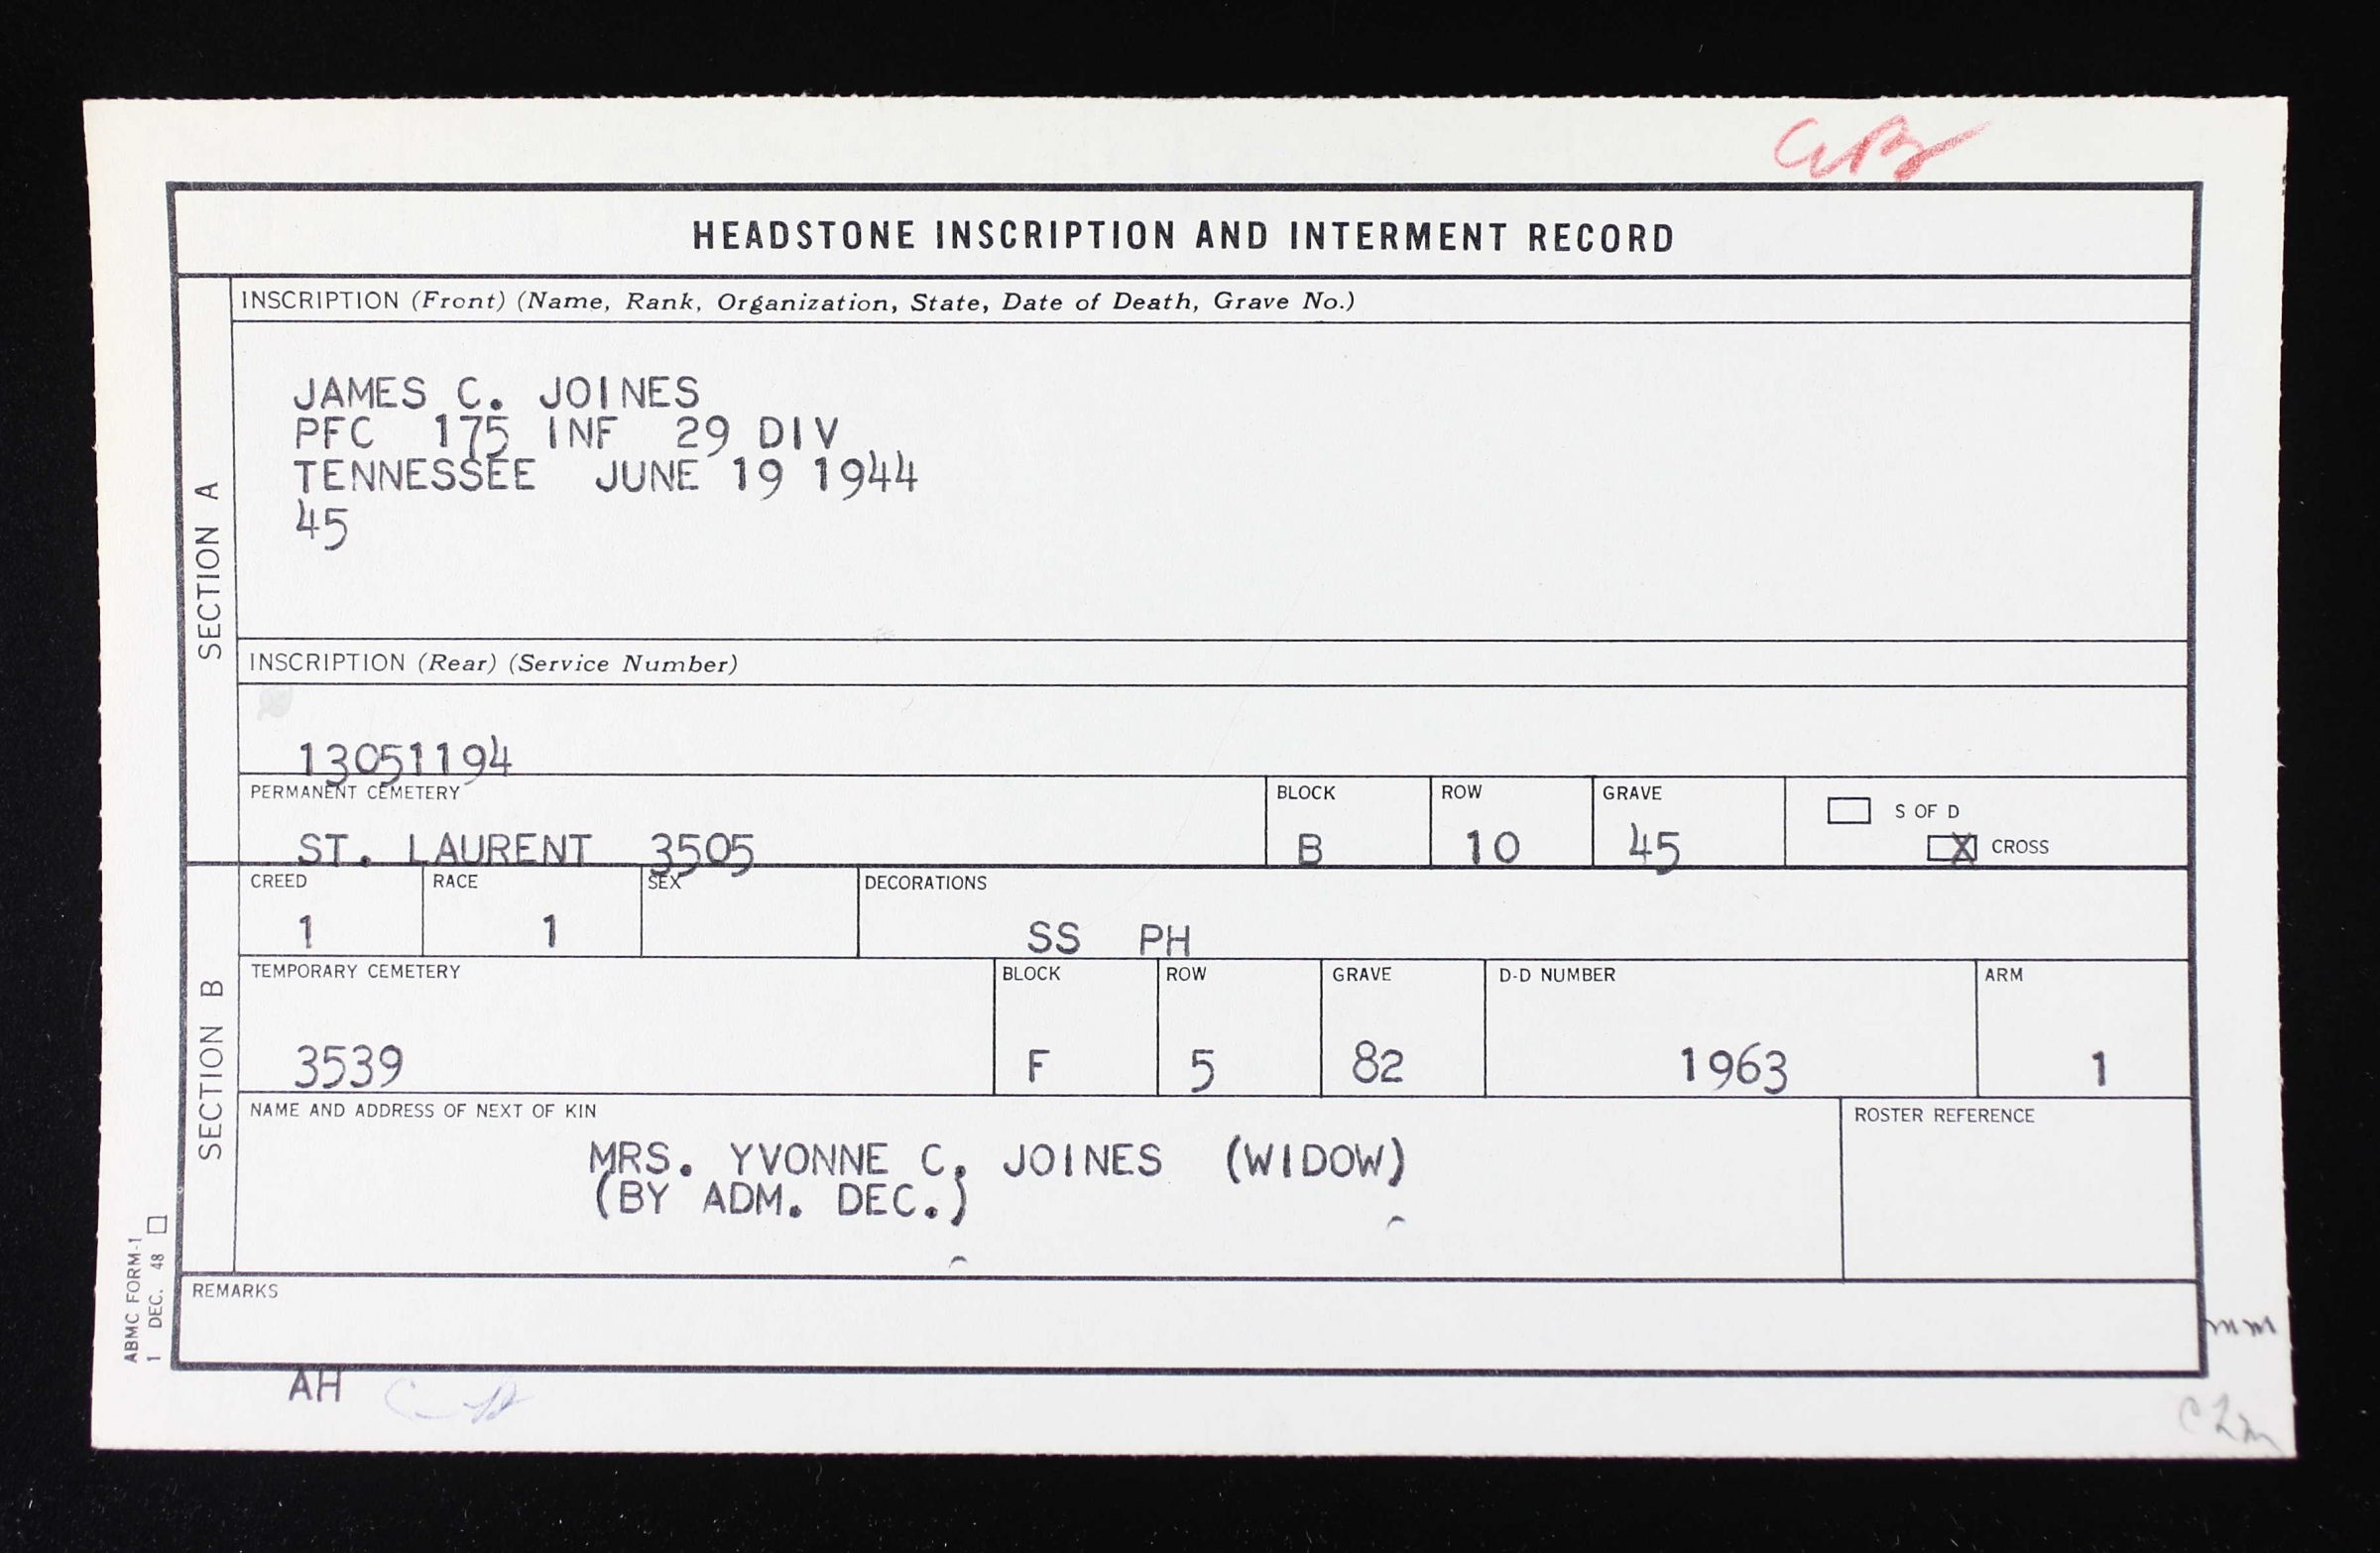 HEADSTONE INSCRIPTION AND INTERMENT RECORD
SECTION A
INSCRIPTION (Front) (Name, Rank, Organization, State, Date of Death, Grave No.)
JAMES C. JOINES
PFC 175 INF 29 DIV
TENNESSEE JUNE 19 1944
45
INSCRIPTION (Rear) (Service Number)
13051194
PERMANENT CEMETERY BLOCK ROW GRAVE
ST. LAURENT 3505 B 10 45
S OF D
X CROSS
SECTION B
CREED RACE SEX DECORATIONS
1 1 SS PH
TEMPORARY CEMETERY BLOCK ROW GRAVE D-D NUMBER ARM
3539 F 5 82 1963 1
NAME AND ADDRESS OF NEXT OF KIN ROSTER REFERENCE
MRS. YVONNE C. JOINES (WIDOW)
(BY ADM. DEC.)
REMARKS
ABMC FORM-1
1 DEC. 48
AH